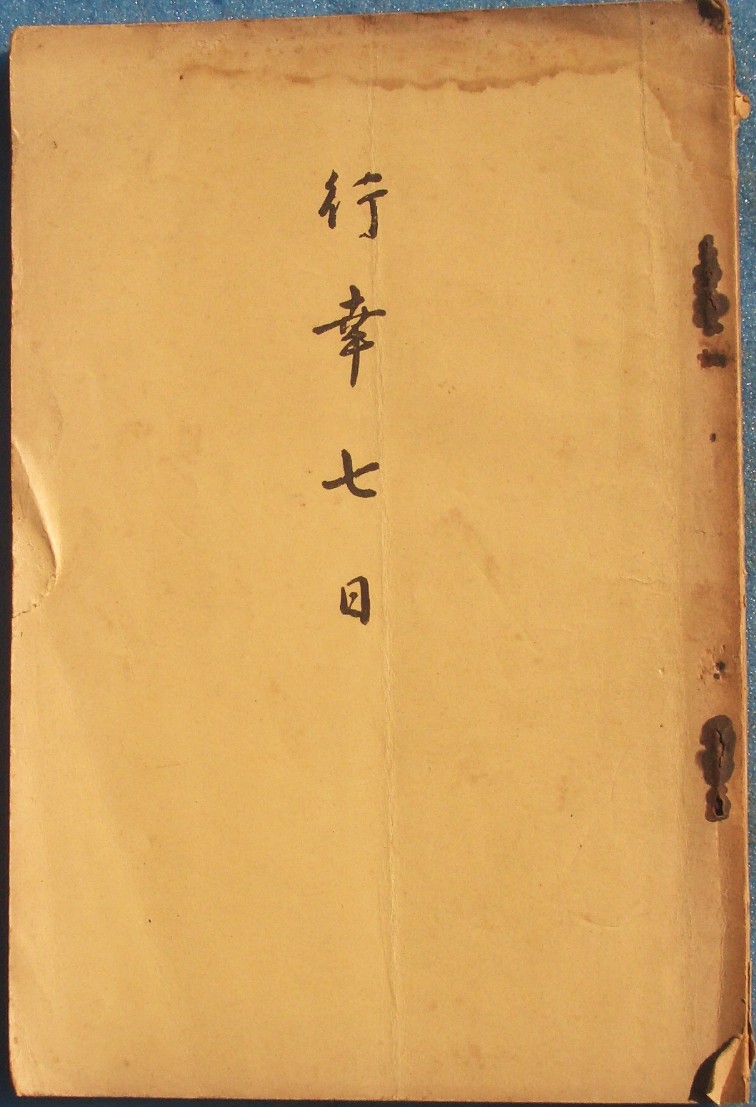 行幸七日